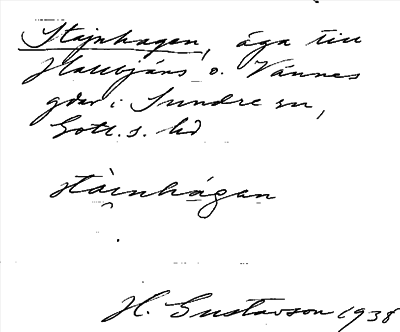 Stajnhagen, äga till
Hallbjäns o. Vännes
gdar i Sundre sn,
Gotl. s. hd
stàinhágan
H. Gustavson 1938